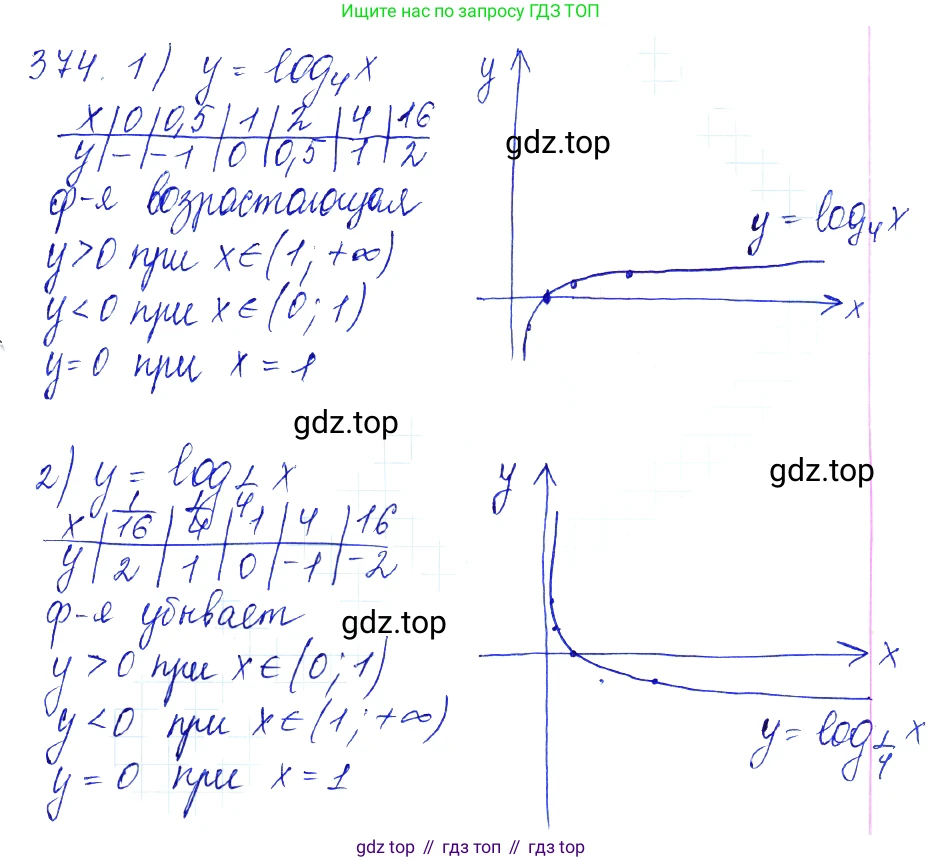 Ищите нас по запросу ГДЗ ТОП
374. 1) y = log₄x
x | 0 | 0,5 | 1 | 2 | 4 | 16
y | – | –1 | 0 | 0,5 | 1 | 2
ф-я возрастающая
y > 0 при x ∈ (1; +∞)
y < 0 при x ∈ (0; 1)
y = 0 при x = 1
y
gdz.top
y = log₄x
x
gdz.top
2) y = log_{1/4} x
x | 1/16 | 1/4 | 1 | 4 | 16
y | 2 | 1 | 0 | –1 | –2
ф-я убывает
y > 0 при x ∈ (0; 1)
y < 0 при x ∈ (1; +∞)
y = 0 при x = 1
y
gdz.top
gdz.top
x
y = log_{1/4} x
gdz.top // гдз.top // гдз.top